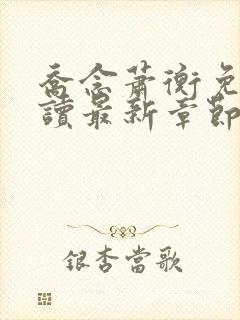 喬念蕭衡免
讀最新章節
銀杏當歌